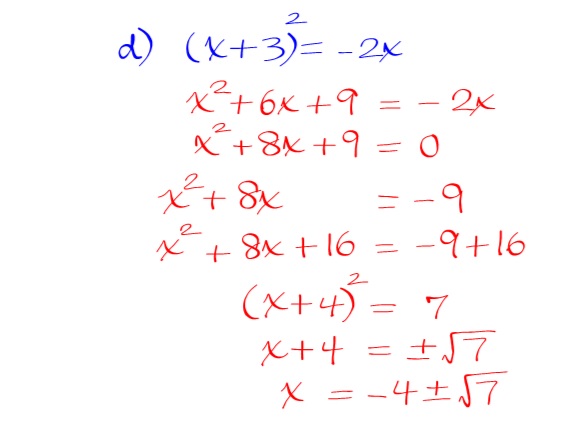 d) (x+3)² = -2x
x² + 6x + 9 = - 2x
x² + 8x + 9 = 0
x² + 8x = -9
x² + 8x + 16 = -9+16
(x+4)² = 7
x+4 = ±√7
x = -4±√7